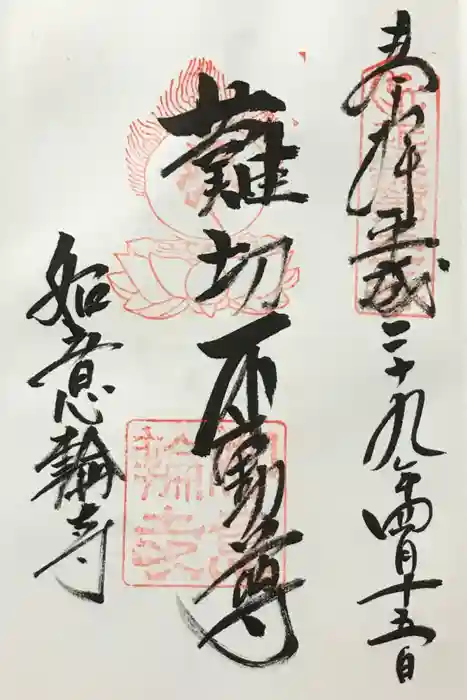 奉拝 平成二十九年四月十五日
難切不動尊
如意輪寺